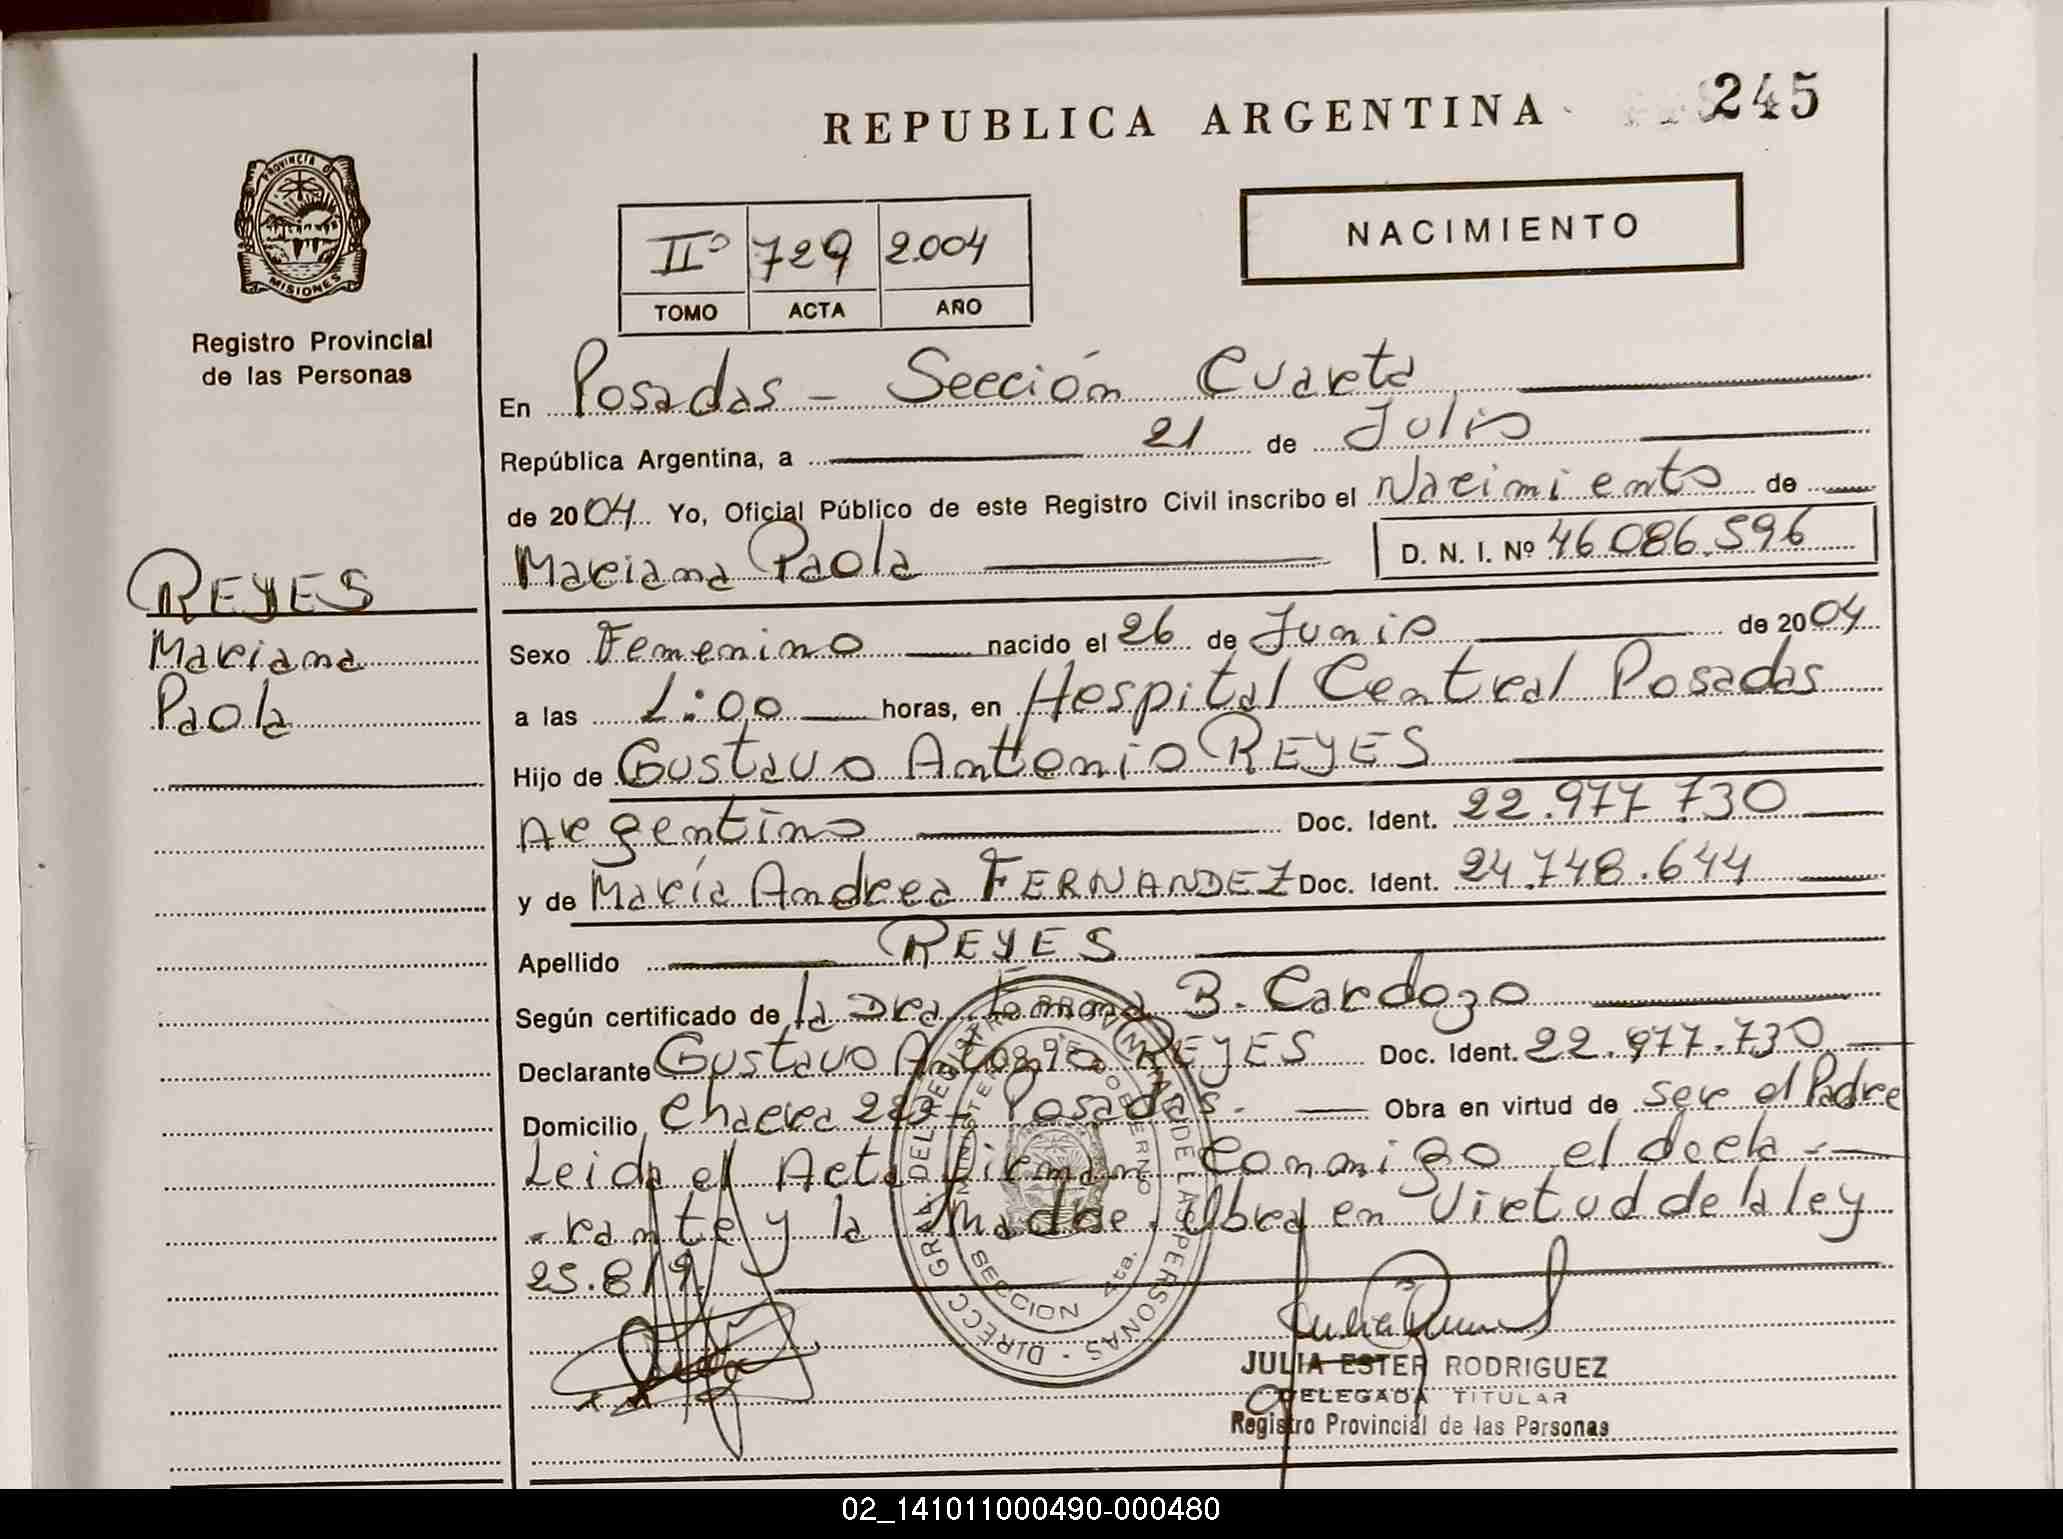 REPUBLICA ARGENTINA
245
PROVINCIA DE
MISIONES
Registro Provincial
de las Personas
NACIMIENTO
IIº 729 2.004
TOMO ACTA AÑO
En Posadas - Sección Cuarta
República Argentina, a 21 de Julio
de 2004 Yo, Oficial Público de este Registro Civil inscribo el Nacimiento de
Mariana Paola D. N. I. Nº 46.086.596
REYES
Mariana
Paola
Sexo Femenino nacido el 26 de Junio de 2004
a las 1:00 horas, en Hospital Central Posadas
Hijo de Gustavo Antonio REYES
Argentino Doc. Ident. 22.977.730
y de María Andrea FERNANDEZ Doc. Ident. 24.748.644
Apellido REYES
Según certificado de la Dra B. Cardozo
Declarante Gustavo Antonio REYES Doc. Ident. 22.977.730
Domicilio Chacra Posadas. Obra en virtud de ser el Padre
Leida el Acta Firman conmigo el decla-
-rante y la Madre. Obra en Virtud de la ley
25.819.
DIRECC GRAL. DEL REGISTRO PROVINCIAL DE LAS PERSONAS
MINISTERIO DE GOBIERNO
SECCION 4ta.
JULIA ESTER RODRIGUEZ
DELEGADA TITULAR
Registro Provincial de las Personas
02_141011000490-000480